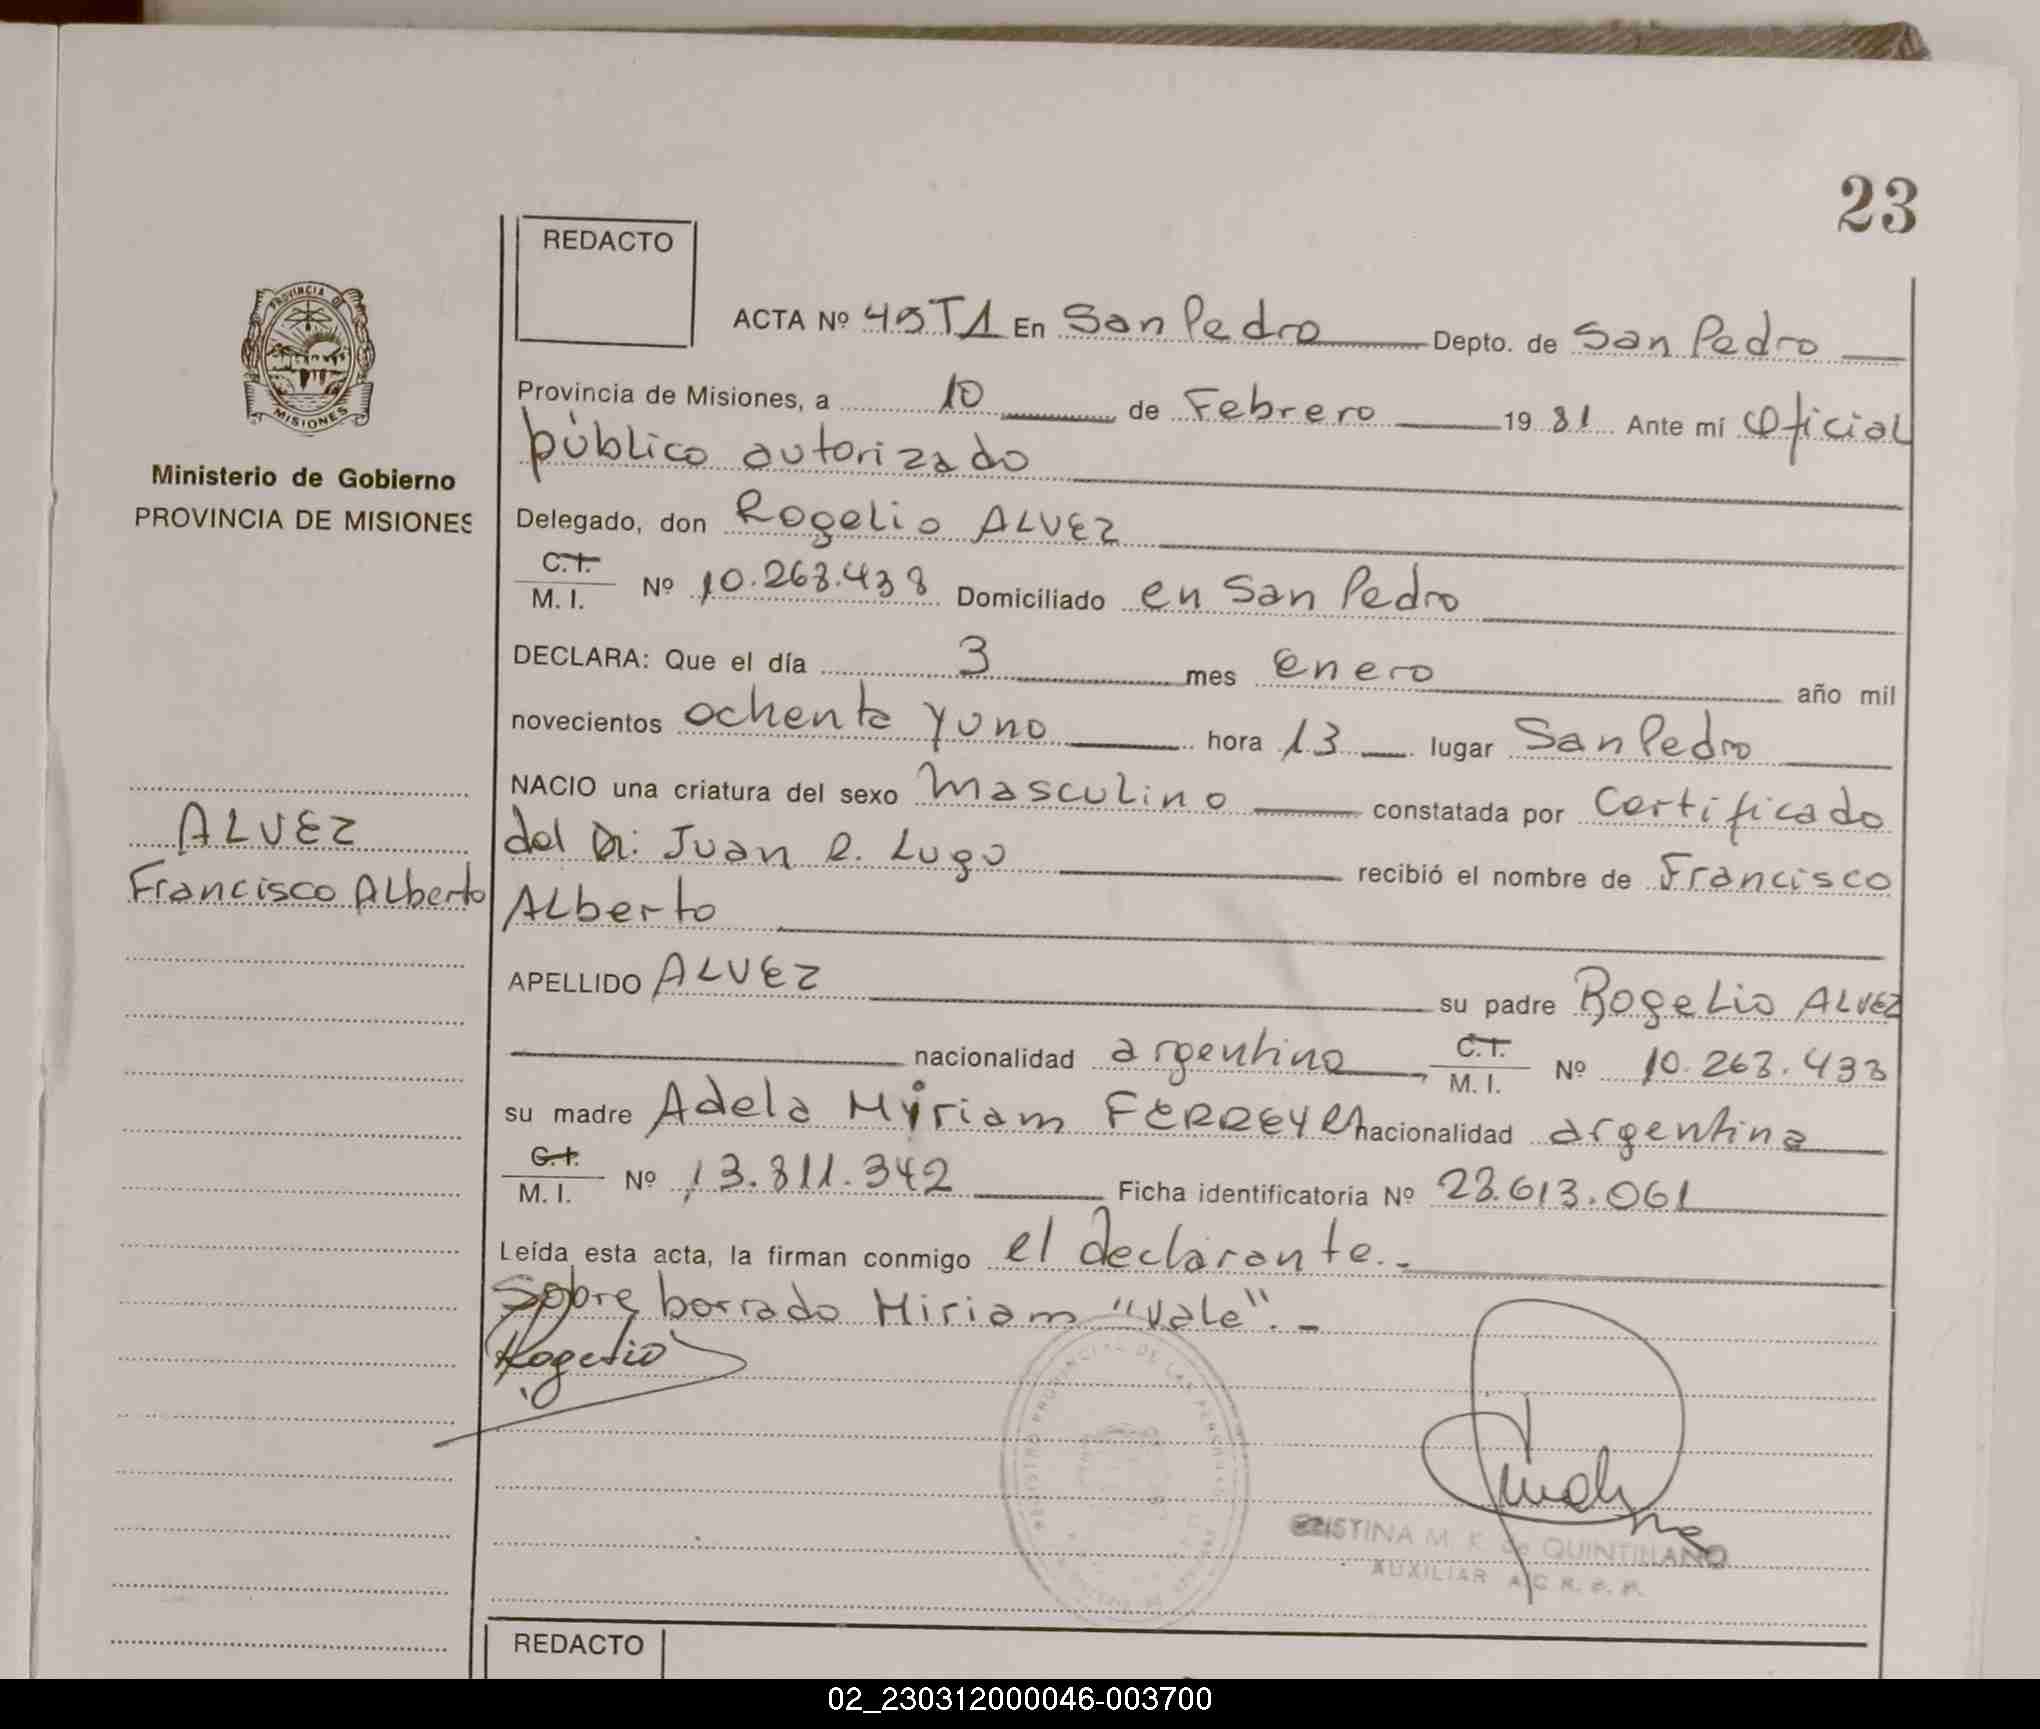 23
REDACTO
ACTA Nº 45T1 En San Pedro Depto. de San Pedro
Provincia de Misiones, a 10 de Febrero 1981 Ante mí Oficial
público autorizado
Ministerio de Gobierno
PROVINCIA DE MISIONES
Delegado, don Rogelio ALVEZ
C.I.
M. I. Nº 10.263.438 Domiciliado en San Pedro
DECLARA: Que el día 3 mes enero año mil
novecientos ochenta y uno hora 13 lugar San Pedro
NACIO una criatura del sexo Masculino constatada por Certificado
del Dr: Juan R. Lugo recibió el nombre de Francisco
Alberto
ALVEZ
Francisco Alberto
APELLIDO ALVEZ su padre Rogelio ALVEZ
nacionalidad argentino C.I.
M. I. Nº 10.263.433
su madre Adela Miriam FERREYRA nacionalidad argentina
C.I.
M. I. Nº 13.811.342 Ficha identificatoria Nº 28.613.061
Leída esta acta, la firman conmigo el declarante.-
Sobre borrado Miriam "Vale".-
Rogelio
REGISTRO PROVINCIAL DE LAS PERSONAS
CRISTINA M. K. de QUINTILLANO
AUXILIAR
REDACTO
02_230312000046-003700